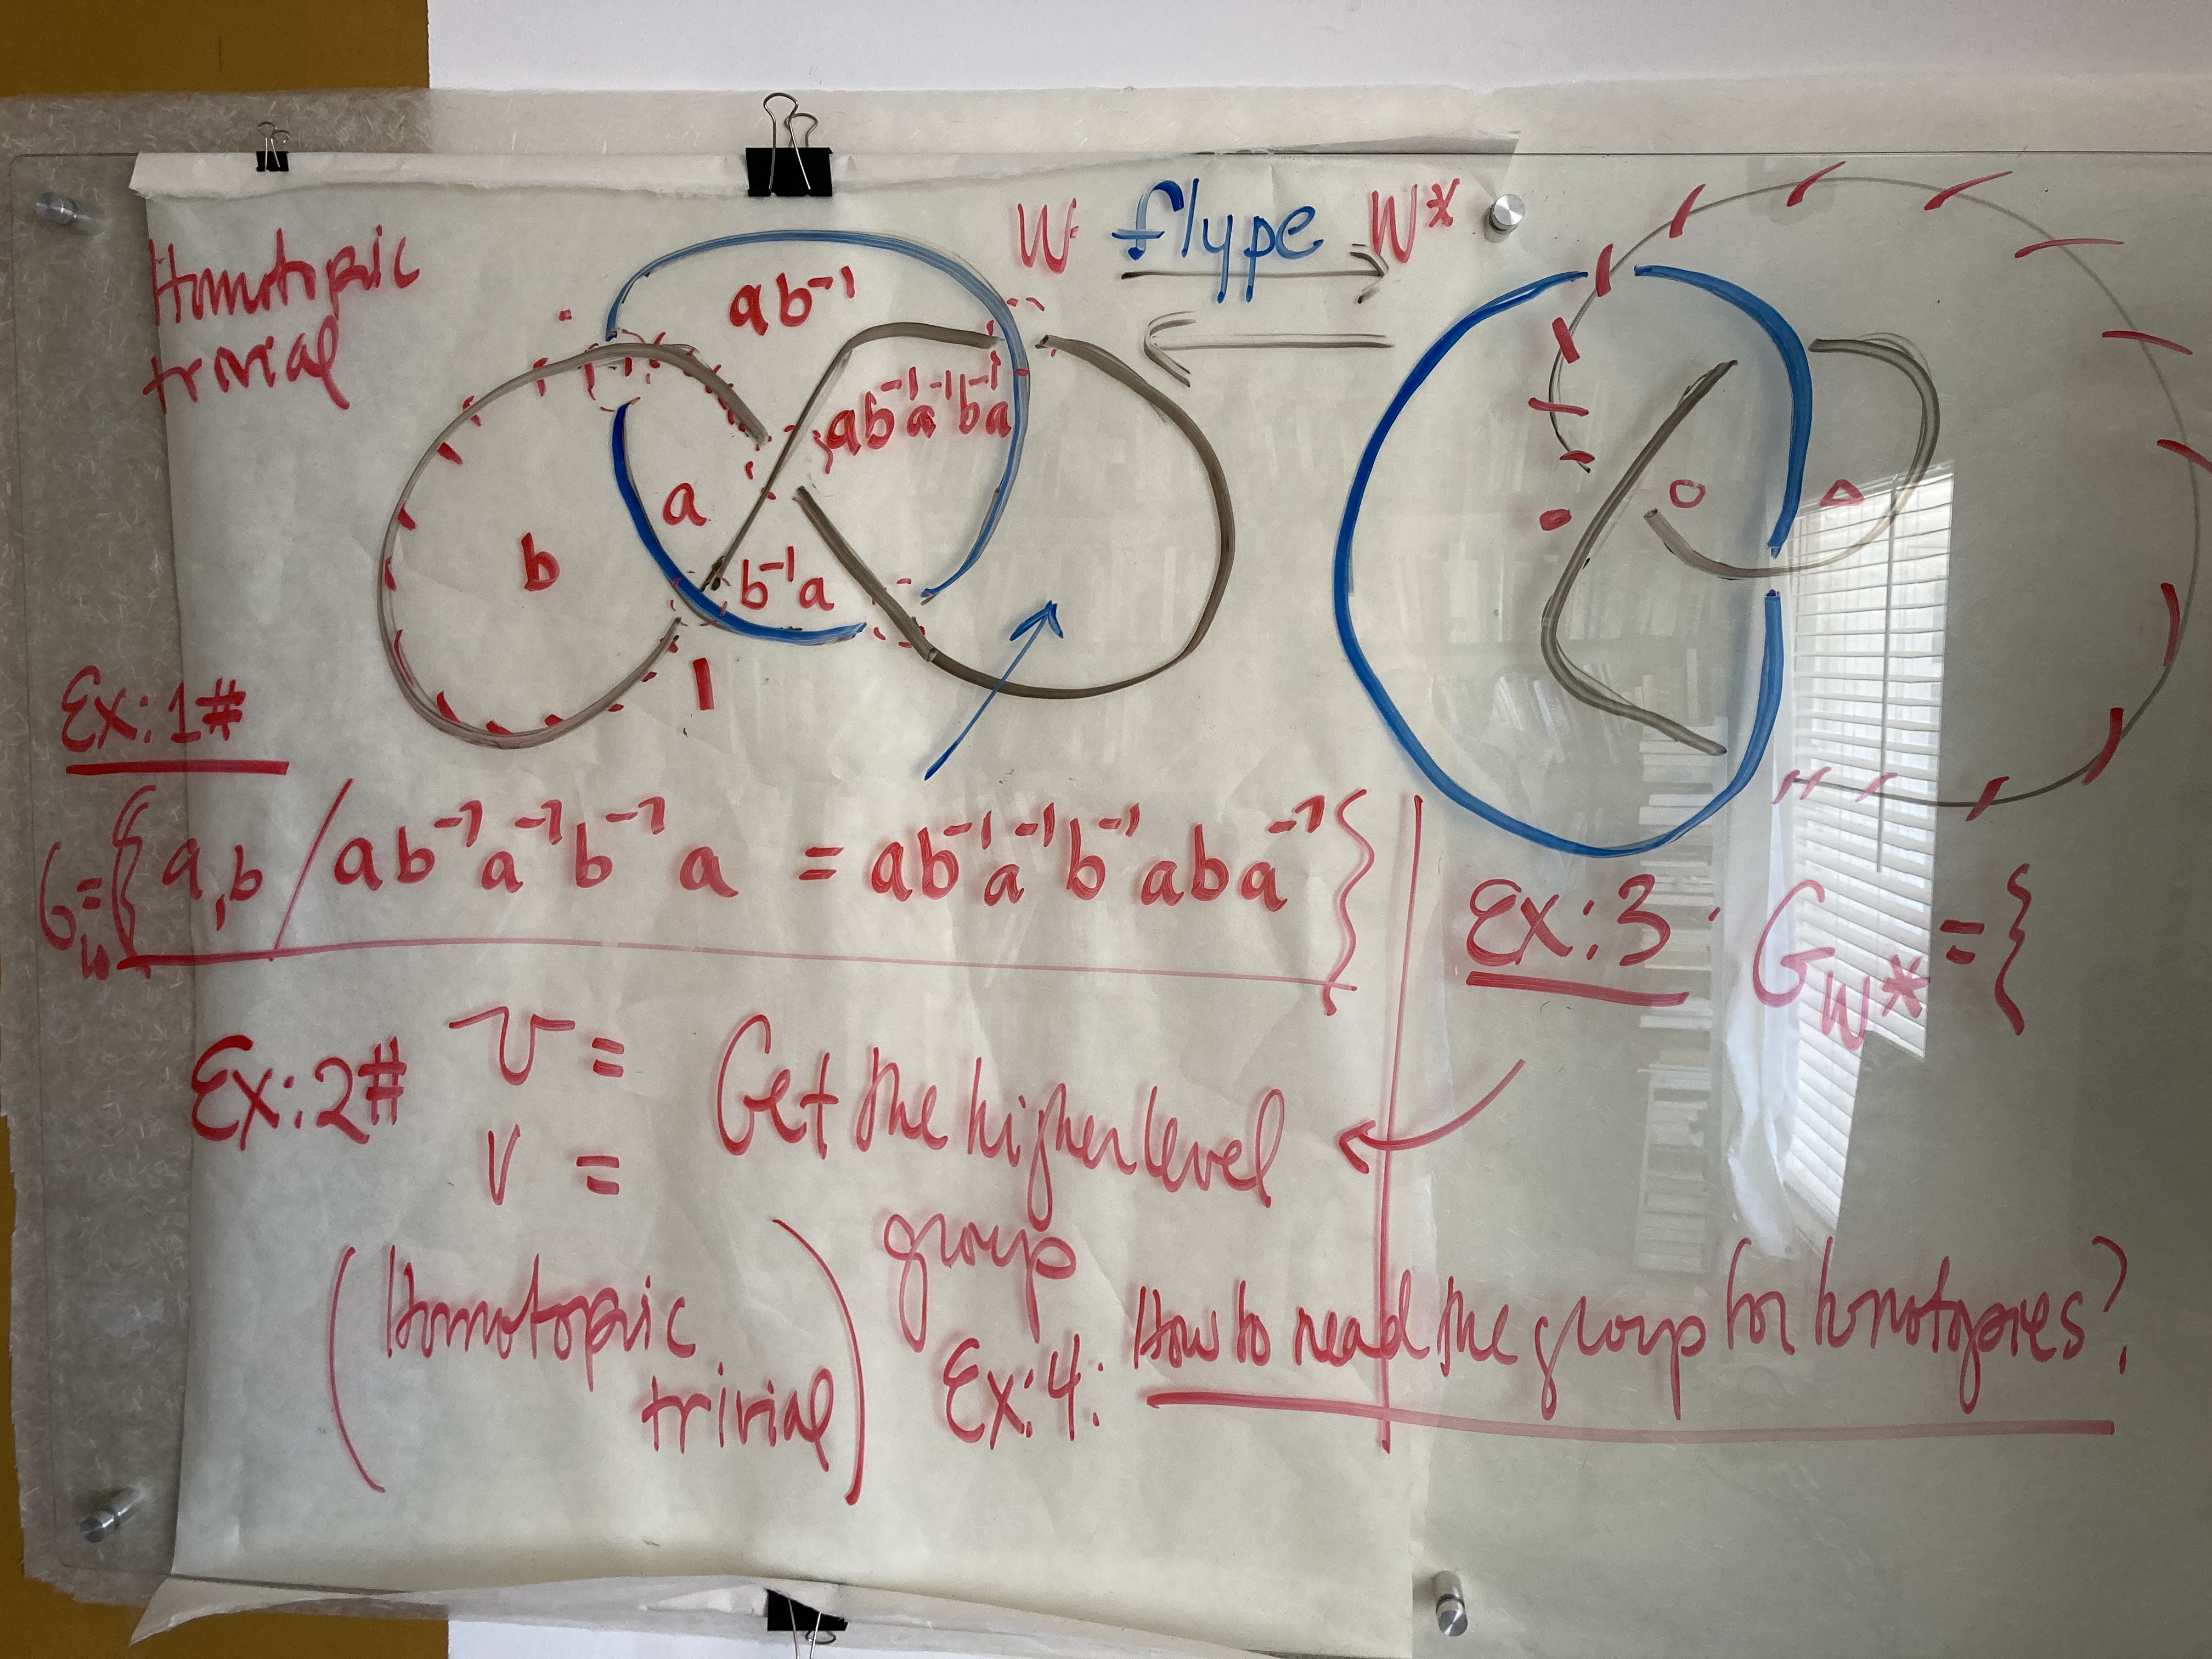 Homotopic
trivial
W flype W*
ab⁻¹
ab⁻¹a⁻¹b⁻¹a
a
b
b⁻¹a
1
Ex:1#
G_W={a,b/ab⁻¹a⁻¹b⁻¹a = ab⁻¹a⁻¹b⁻¹aba⁻¹}
Ex:2#
v =
Get the higher level
group
(Homotopic
trivial)
Ex:3: G_W* = {
Ex:4: How to read the group for homotopies?